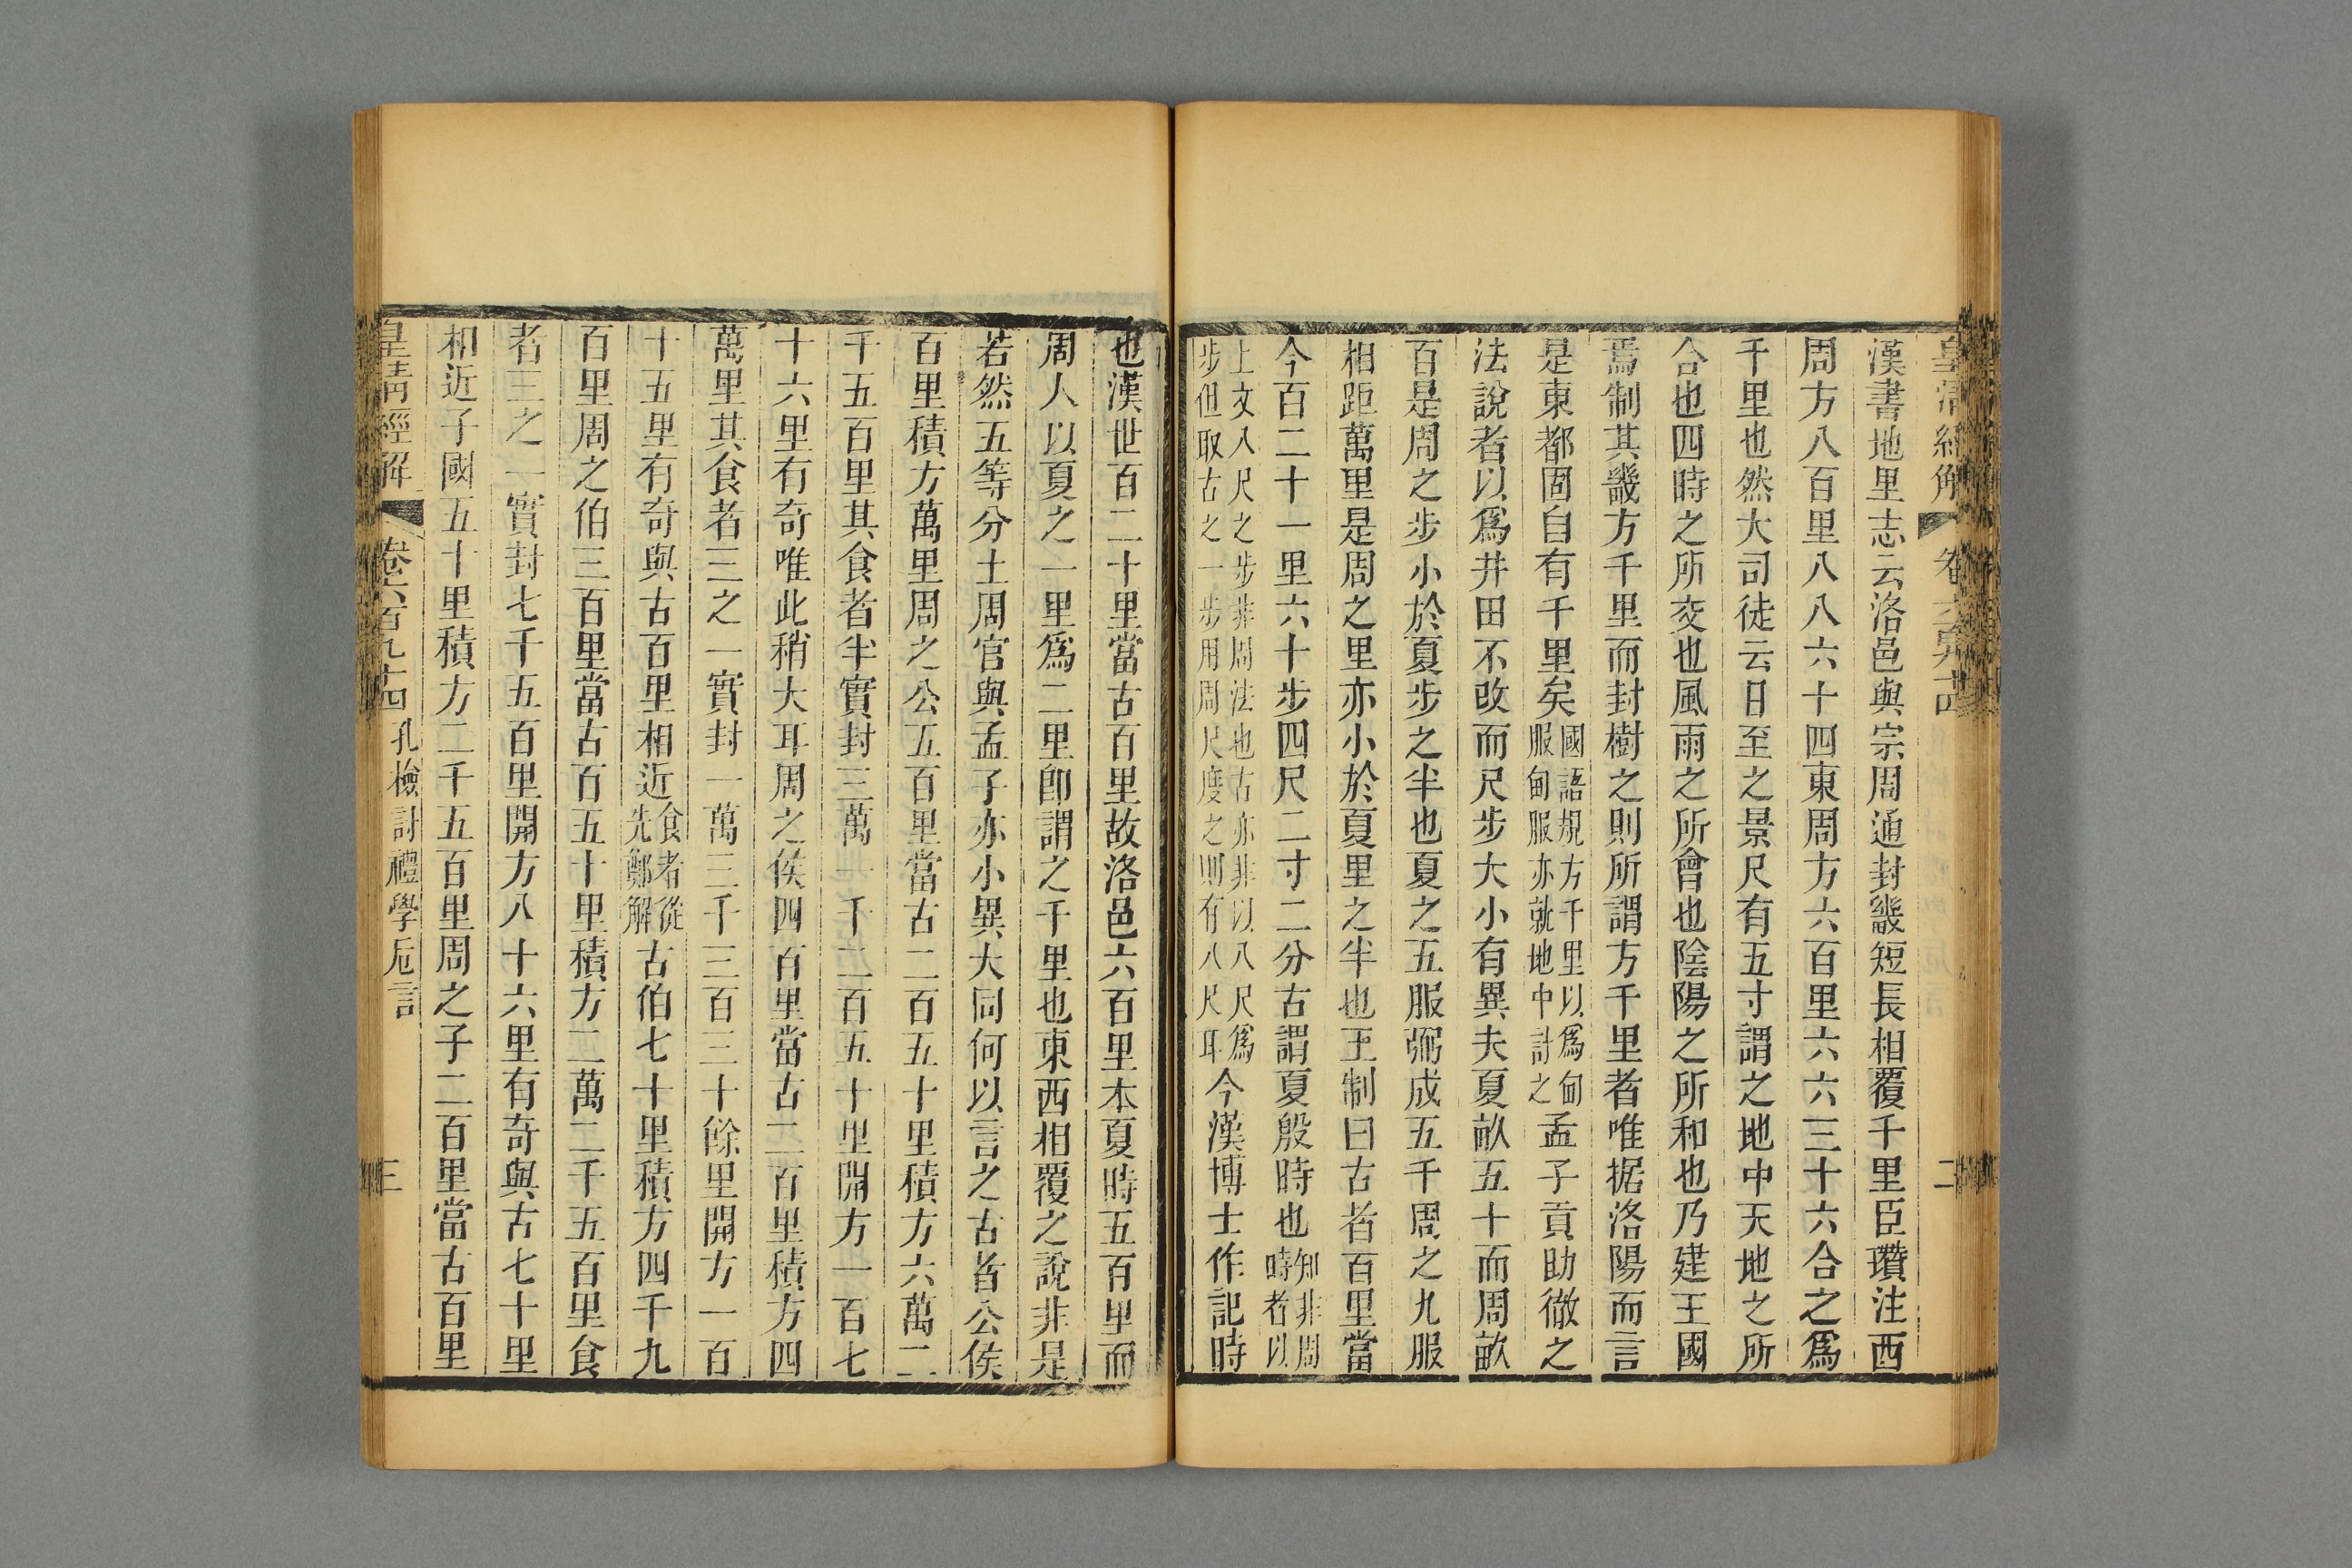 漢書地里志云洛邑與宗周通封畿短長相覆千里臣瓚注西
周方八百里八八六十四東周方六百里六六三十六合之爲
千里也然大司徒云日至之景尺有五寸謂之地中天地之所
合也四時之所交也風雨之所會也陰陽之所和也乃建王國
焉制其畿方千里而封樹之則所謂方千里者唯据洛陽而言
是東都固自有千里矣國語規方千里以爲甸服甸服亦就地中計之孟子貢助徹之
法說者以爲井田不改而尺步大小有異夫夏畝五十而周畝
百是周之步小於夏步之半也夏之五服弼成五千周之九服
相距萬里是周之里亦小於夏里之半也王制曰古者百里當
今百二十一里六十步四尺二寸二分古謂夏殷時也知非周時者以
上文八尺之步非周法也古亦非以八尺爲步但取古之一步用周尺度之則有八尺耳今漢博士作記時
也漢世百二十里當古百里故洛邑六百里本夏時五百里而
周人以夏之一里爲二里卽謂之千里也東西相覆之說非是
若然五等分土周官與孟子亦小異大同何以言之古者公侯
百里積方萬里周之公五百里當古二百五十里積方六萬二
千五百里其食者半實封三萬一千二百五十里開方一百七
十六里有奇唯此稍大耳周之侯四百里當古二百里積方四
萬里其食者三之一實封一萬三千三百三十餘里開方一百
十五里有奇與古百里相近食者從先鄭解古伯七十里積方四千九
百里周之伯三百里當古百五十里積方二萬二千五百里食
者三之一實封七千五百里開方八十六里有奇與古七十里
相近子國五十里積方二千五百里周之子二百里當古百里
皇清經解 卷六百九十四 孔檢討禮學卮言 三